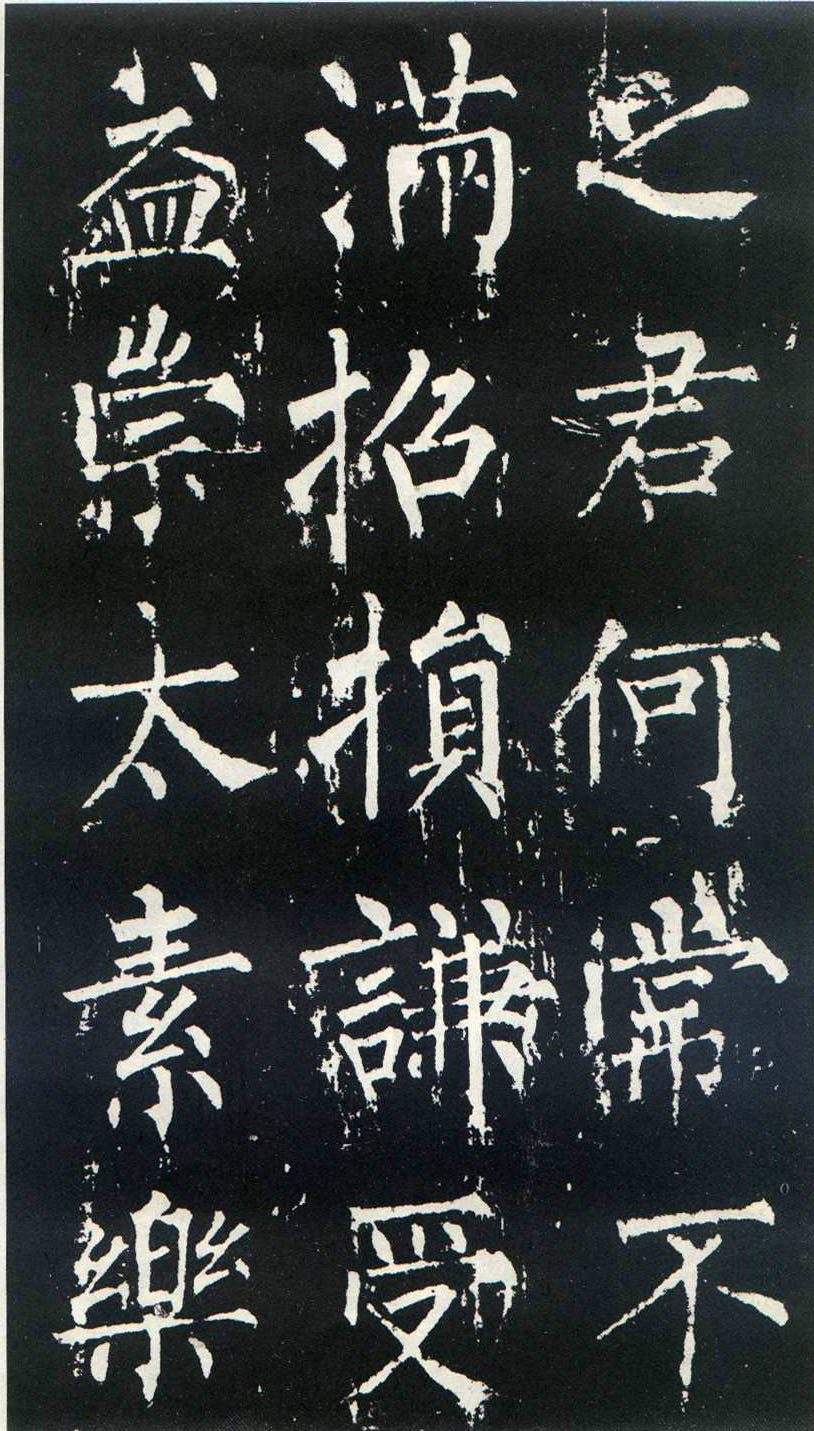 之君何常不
滿招損謙受
益崇太素樂